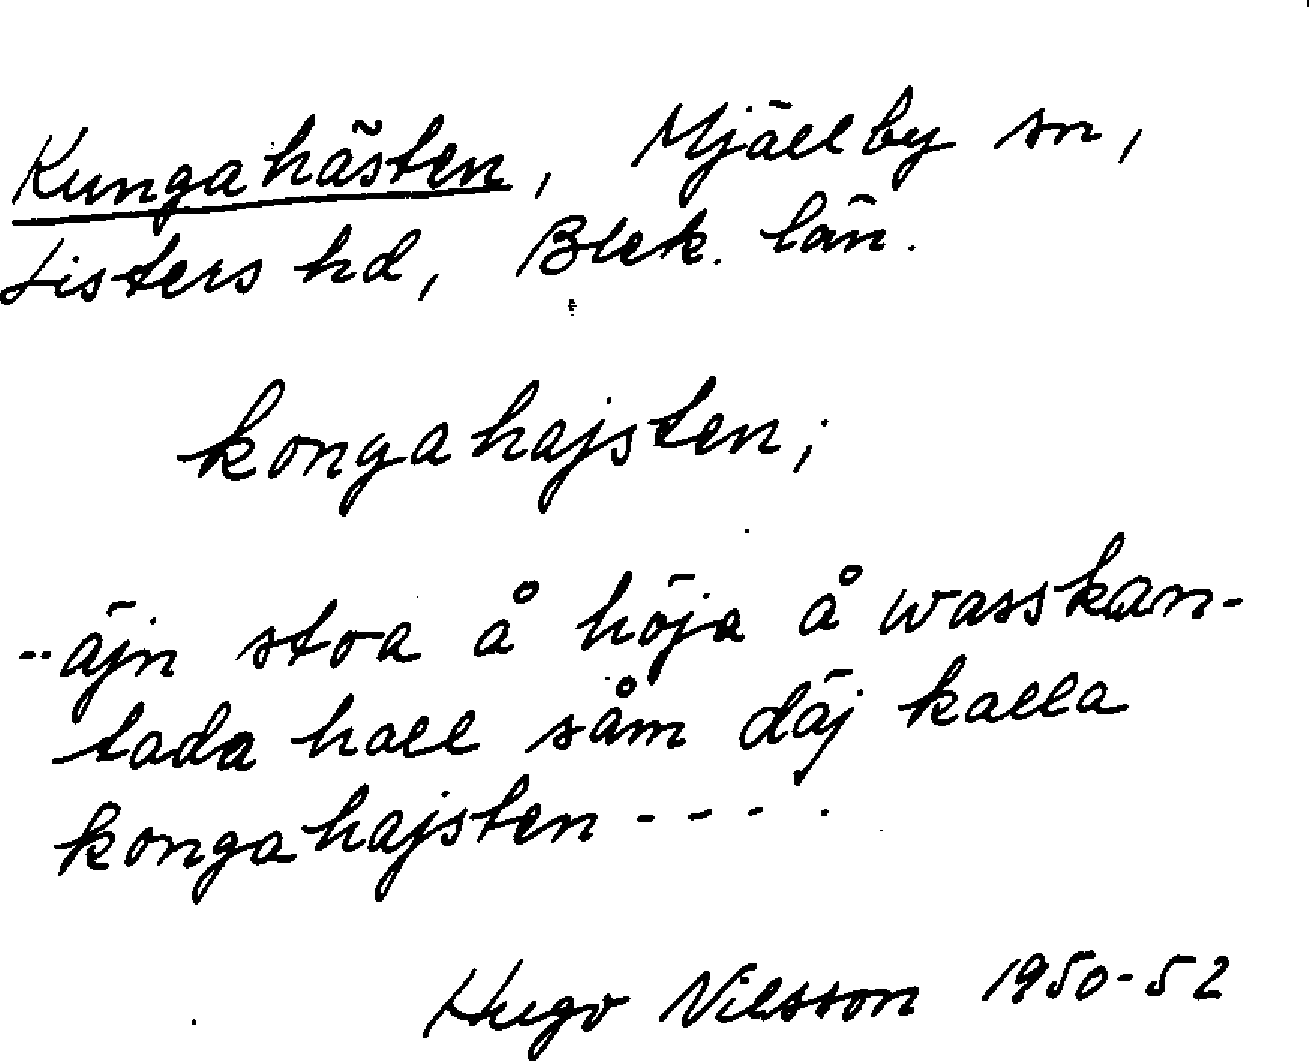 Kungahästen, Mjällby sn,
Listers hd, Blek. län.
kongahajsten;
--äjn stoa å höja å wasskan-
tada hall såm däj kalla
kongahajsten - - - - .
Hugo Nilsson 1950-52